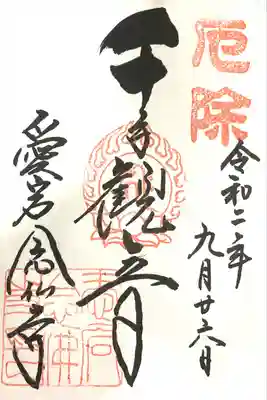 厄除
令和二年
九月廿六日
千手觀音
愛宕念仏寺